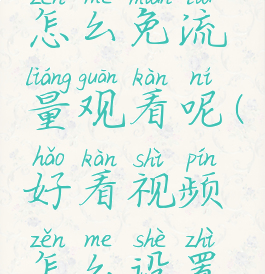 zěn me miǎn liú
怎么免流
liáng guān kàn ní
量观看呢(
hǎo kàn shì pín
好看视频
zěn me shè zhì
怎么设置